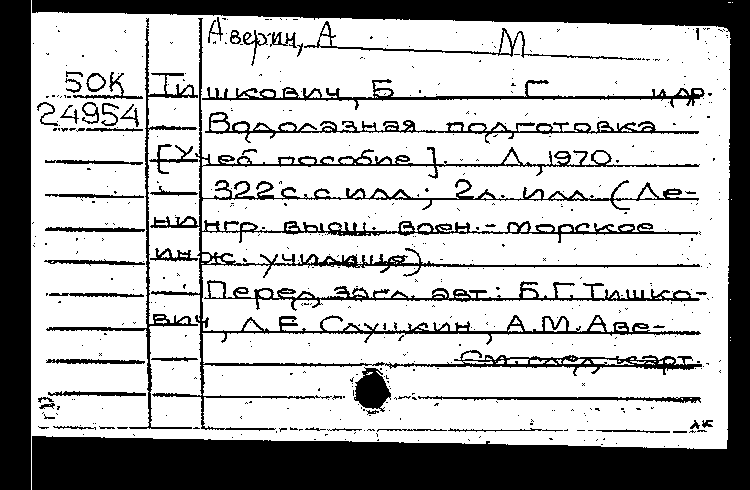 Аверин, А М
50К Тишкович, Б Г и др.
24954 Водолазная подготовка
[Учеб. пособие]. Л., 1970.
322 с. с илл.; 2л. илл. (Ле-
нингр. высш. воен.-морское
инж. училище)
Перед загл. авт: Б.Г. Тишко-
вич, Л.Е. Слуцкин, А.М. Аве-
См. след. карт.